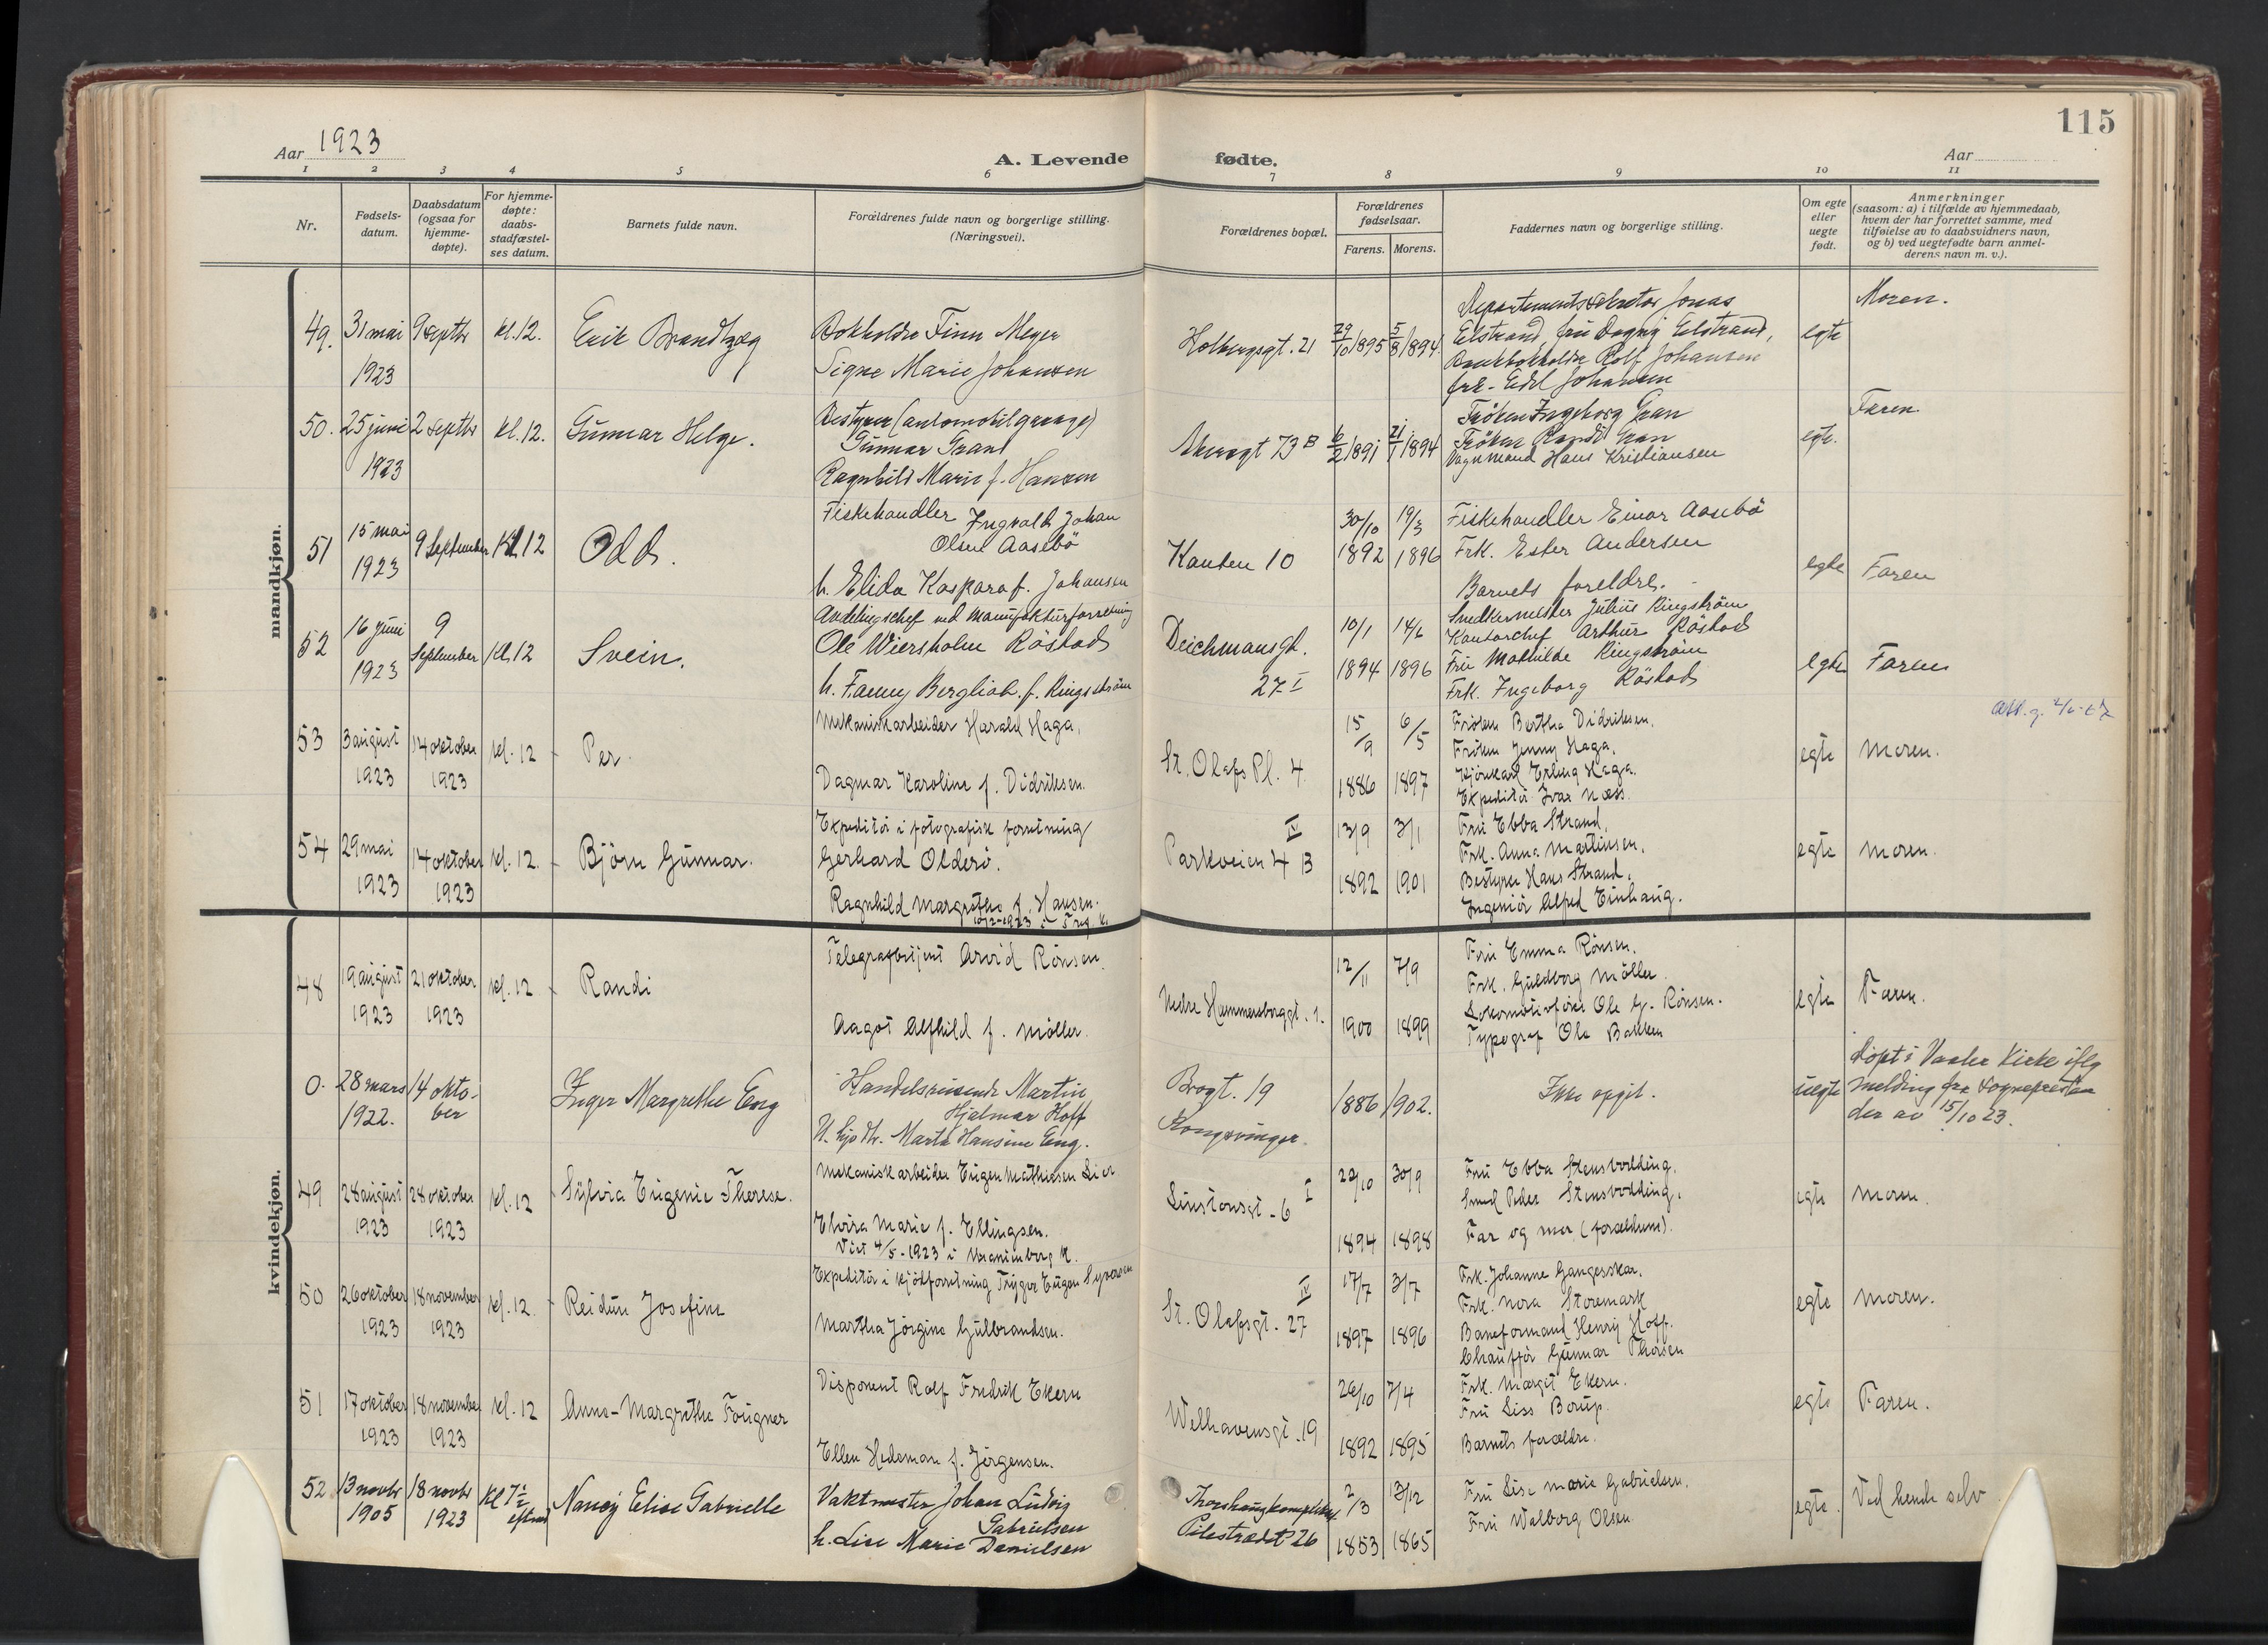 115
Aar 1923
A. Levende fødte.
Aar
1 2 3 4 5 6 7 8 9 10 11
Nr.
Fødsels-
datum.
Daabsdatum
(ogsaa for
hjemme-
døpte).
For hjemme-
døpte:
daabs-
stadfæstel-
ses datum.
Barnets fulde navn.
Forældrenes fulde navn og borgerlige stilling.
(Næringsvei).
Forældrenes bopæl.
Forældrenes
fødselsaar.
Farens. Morens.
Faddernes navn og borgerlige stilling.
Om egte
eller
uegte
født.
Anmerkninger
(saasom: a) i tilfælde av hjemmedaab,
hvem der har forrettet samme, med
tilføielse av to daabsvidners navn,
og b) ved uegtefødte barn anmel-
derens navn m. v.).
mandkjøn.
49. 31 mai
1923
9 septbr
kl. 12.
Erik Brandtzæg
Bokholder Finn Meyer
Signe Marie Johansen
Holbergsgt. 21
29/10 1895
5/8 1894
Departementssekretær Jonas
Eelstrand, fru Dagny Eelstrand,
Bankbokholder Rolf Johansen
frk. Edel Johansen
egte
Moren.
50. 25 juni
1923
2 septbr
kl. 12.
Gunnar Helge.
Bestyrer (automobilgarage)
Gunnar Gran
Ragnhild Marie f. Hansen
Akersgt 73 B
6/2 1891
21/1 1894
Frøken Ingeborg Gran
Frøken Randi Gran
Vognmand Hans Kristiansen
egte.
Faren.
51 15 mai
1923
9 September
Kl. 12
Odd.
Fiskehandler Ingvald Johan
Olsen Aasebö
h. Elida Kaspara f. Johansen
Kanten 10
30/10
1892
19/3
1896
Fiskehandler Einar Aasebö
Frk. Ester Andersen
Barnets foreldre.
egte
Faren
52 16 juni
1923
9
September
Kl. 12
Svein.
Avdelingschef ved Manufakturforretning
Ole Wiersholm Röstad
h. Fanny Bergliot. f. Ringström
Deichmansgt.
27 I
10/1
1894
14/6
1896
Snedkermester Julius Ringström
Kontorchef Arthur Röstad
Fru Mathilde Ringström
Frk. Ingeborg Röstad
egte
Faren
53 3 august
1923
14 oktober
1923
kl. 12
Per.
Mekaniskarbeider Harald Haga.
Dagmar Karoline f. Didriksen.
St. Olafs Pl. 4
15/9
1886
6/5
1897
Frøken Bertha Didriksen.
Frøken Jenny Haga.
Kjørekarl Erling Haga.
Expeditør Ivar Næss.
egte
Moren.
54 29 mai
1923
14 oktober
1923
kl. 12.
Björn Gunnar.
Expeditør i fotografisk forretning
Gerhard Olderö.
Ragnhild Margrethe f. Hansen.
Parkveien 4 B IV
13/9
1892
3/1
1901
Fru Ebba Strand.
Frk. Anna Martinsen.
Bestyrer Hans Strand.
Ingeniør Alfred Einhaug.
egte
Moren.
kvindekjøn.
48 19 august
1923
21 oktober
1923
kl. 12
Randi
Telegrafbetjent Arvid Rönsen.
Aagot Alfhild f. Möller.
Nedre Hammersborggt. 1.
12/11
1900
7/9
1899
Fru Emma Rönsen.
Frk. Guldborg Möller.
Lokomotivfører Ole G. Rönsen.
Typograf Ole Bakken
egte
Faren.
0. 28 mars
1922.
14 okto-
ber
Inger Margrethe Eng
Handelsreisende Martin
Hjalmar Hoff
U. hjdtr. Marta Hansine Eng.
Brogt. 19
Kongsvinger.
1886
1902.
Ikke opgit.
uegte
Døpt i Vaaler Kirke iflg
melding fra sognepresten
der av 15/10 23.
49 28 august
1923
28 oktober
1923
kl. 12
Sylvia Eugenie Therese.
Mekaniskarbeider Eugen Mathiesen Lier
Elvira Marie f. Ellingsen.
Viet 4/5-1923 i
Linstowsgt. 6 I
22/10
1894
30/9
1898
Fru Ebba Stensvedding.
Smed Peder Stensvedding.
Far og mor (forældrene).
egte
Moren.
50 26 oktober
1923
18 november
1923
kl. 12.
Reidun Josefine
Expeditør i kjødforretning Trygve Eugen Syversen
Martha Jörgine Gulbrandsen.
St. Olafsgt. 27 IV
17/7
1897
3/7
1896
Frk. Johanne Gangesskar.
Frk. Nora Storemark
Baneformand Henry Hoff.
Chauffør Gunnar Thorsen
egte
Moren.
51 17 oktober
1923
18 november
1923
kl. 12
Anne-Margrethe Fougner
Disponent Rolf Fredrik Ekern
Ellen Hedeman f. Jørgensen.
Welhavensgt. 19
26/10
1892
7/4
1895
Frk. Margit Ekern.
Fru Liss Borup.
Barnets forældre.
egte
Faren.
52 13 novbr
1905
18 novbr
1923
Nancy Elise Gabrielle
Vaktmester Johan Ludvig
Gabrielsen
h. Lise Marie Danielsen
Pilestrædet 26
2/3
1853
13/12
1865
Fru Lise Marie Gabrielsen.
Fru Walborg Olsen.
egte.
Ved hende selv